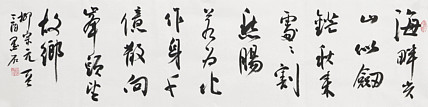 海畔尖
山似劔
鋩秋来
處〻割
愁腸
若為化
作身千
億散向
峯頭望
故鄉
柳宗元